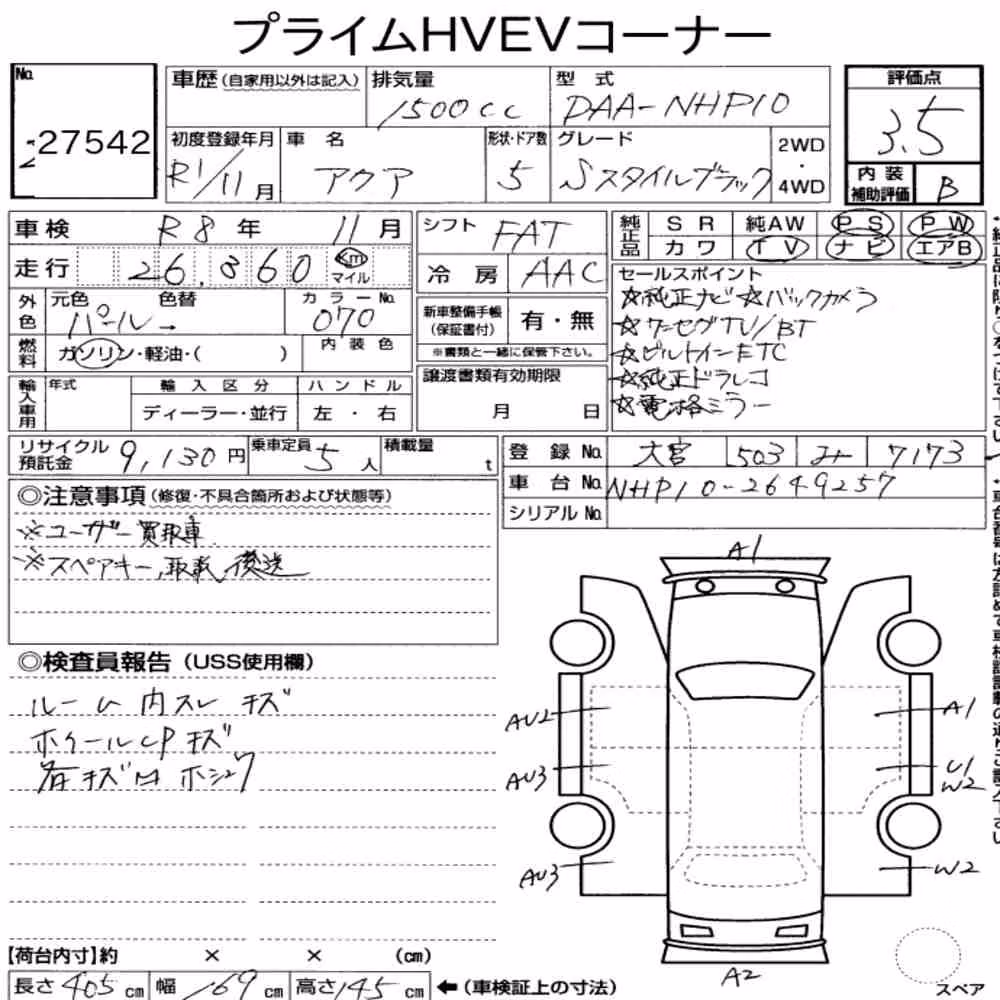 プライムHVEVコーナー
No.
27542
車歴(自家用以外は記入)
排気量
1500cc
型 式
DAA-NHP10
評価点
3.5
初度登録年月
R1/11月
車 名
アクア
形状・ドア数
5
グレード
Sスタイルブラック
2WD
・
4WD
内 装
補助評価
B
車検 R8年 11月
走行 26,860 Km マイル
シフト FAT
冷 房 AAC
純正品
SR 純AW PS PW
カワ TV ナビ エアB
外色
元色 色替
パール→
カラーNo.
070
燃料
ガソリン・軽油・( )
内 装 色
新車整備手帳
(保証書付)
有・無
※書類と一緒に保管下さい。
セールスポイント
☆純正ナビ ☆バックカメラ
☆ワンセグTV/BT
☆ビルトインETC
☆純正ドラレコ
☆電格ミラー
輸入車用
年式
輸 入 区 分
ディーラー・並行
ハ ン ド ル
左 ・ 右
譲渡書類有効期限
月 日
リサイクル
預託金
9,130円
乗車定員 5人
積載量 t
登 録 No. 大宮 503 み 7173
車 台 No. NHP10-2649257
シリアル No.
◎注意事項(修復・不具合箇所および状態等)
※ユーザー買取車
※スペアキー,取載後送
◎検査員報告(USS使用欄)
ルーム内スレ キズ
ホイールCPキズ
各キズ ホシュウ
A1
AU2
AU3
AU3
A1
U1
W2
W2
A2
【荷台内寸】約 × × (cm)
長さ 405 cm 幅 169 cm 高さ 145 cm ←(車検証上の寸法)
スペア